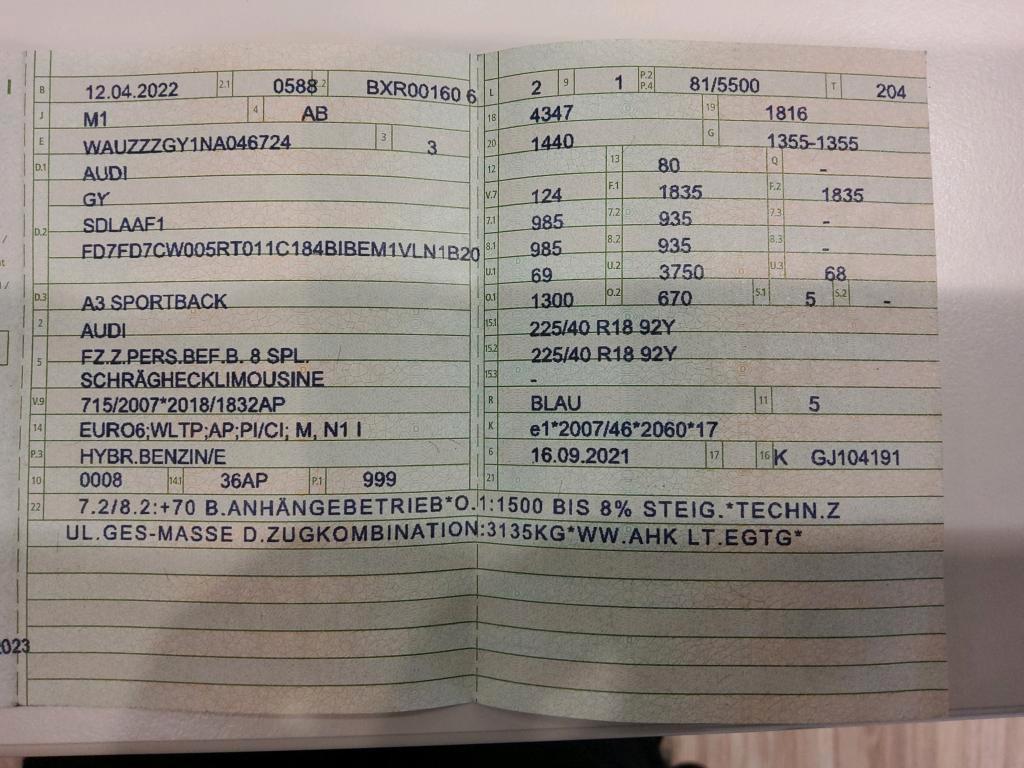 B 12.04.2022 2.1 0588 2.2 BXR00160 6
J M1 4 AB
E WAUZZZGY1NA046724 3 3
D.1 AUDI
GY
D.2 SDLAAF1
FD7FD7CW005RT011C184BIBEM1VLN1B20
D.3 A3 SPORTBACK
2 AUDI
5 FZ.Z.PERS.BEF.B. 8 SPL.
SCHRÄGHECKLIMOUSINE
V.9 715/2007*2018/1832AP
14 EURO6;WLTP;AP;PI/CI; M, N1 I
P.3 HYBR.BENZIN/E
10 0008 14.1 36AP P.1 999
L 2 9 1 P.2 P.4 81/5500 T 204
18 4347 19 1816
20 1440 G 1355-1355
12 13 80 Q -
V.7 124 F.1 1835 F.2 1835
7.1 985 7.2 935 7.3 -
8.1 985 8.2 935 8.3 -
U.1 69 U.2 3750 U.3 68
O.1 1300 O.2 670 S.1 5 S.2 -
15.1 225/40 R18 92Y
15.2 225/40 R18 92Y
15.3 -
R BLAU 11 5
K e1*2007/46*2060*17
6 16.09.2021 17 16 K GJ104191
21
22 7.2/8.2:+70 B.ANHÄNGEBETRIEB*O.1:1500 BIS 8% STEIG.*TECHN.Z
UL.GES-MASSE D.ZUGKOMBINATION:3135KG*WW.AHK LT.EGTG*
2023